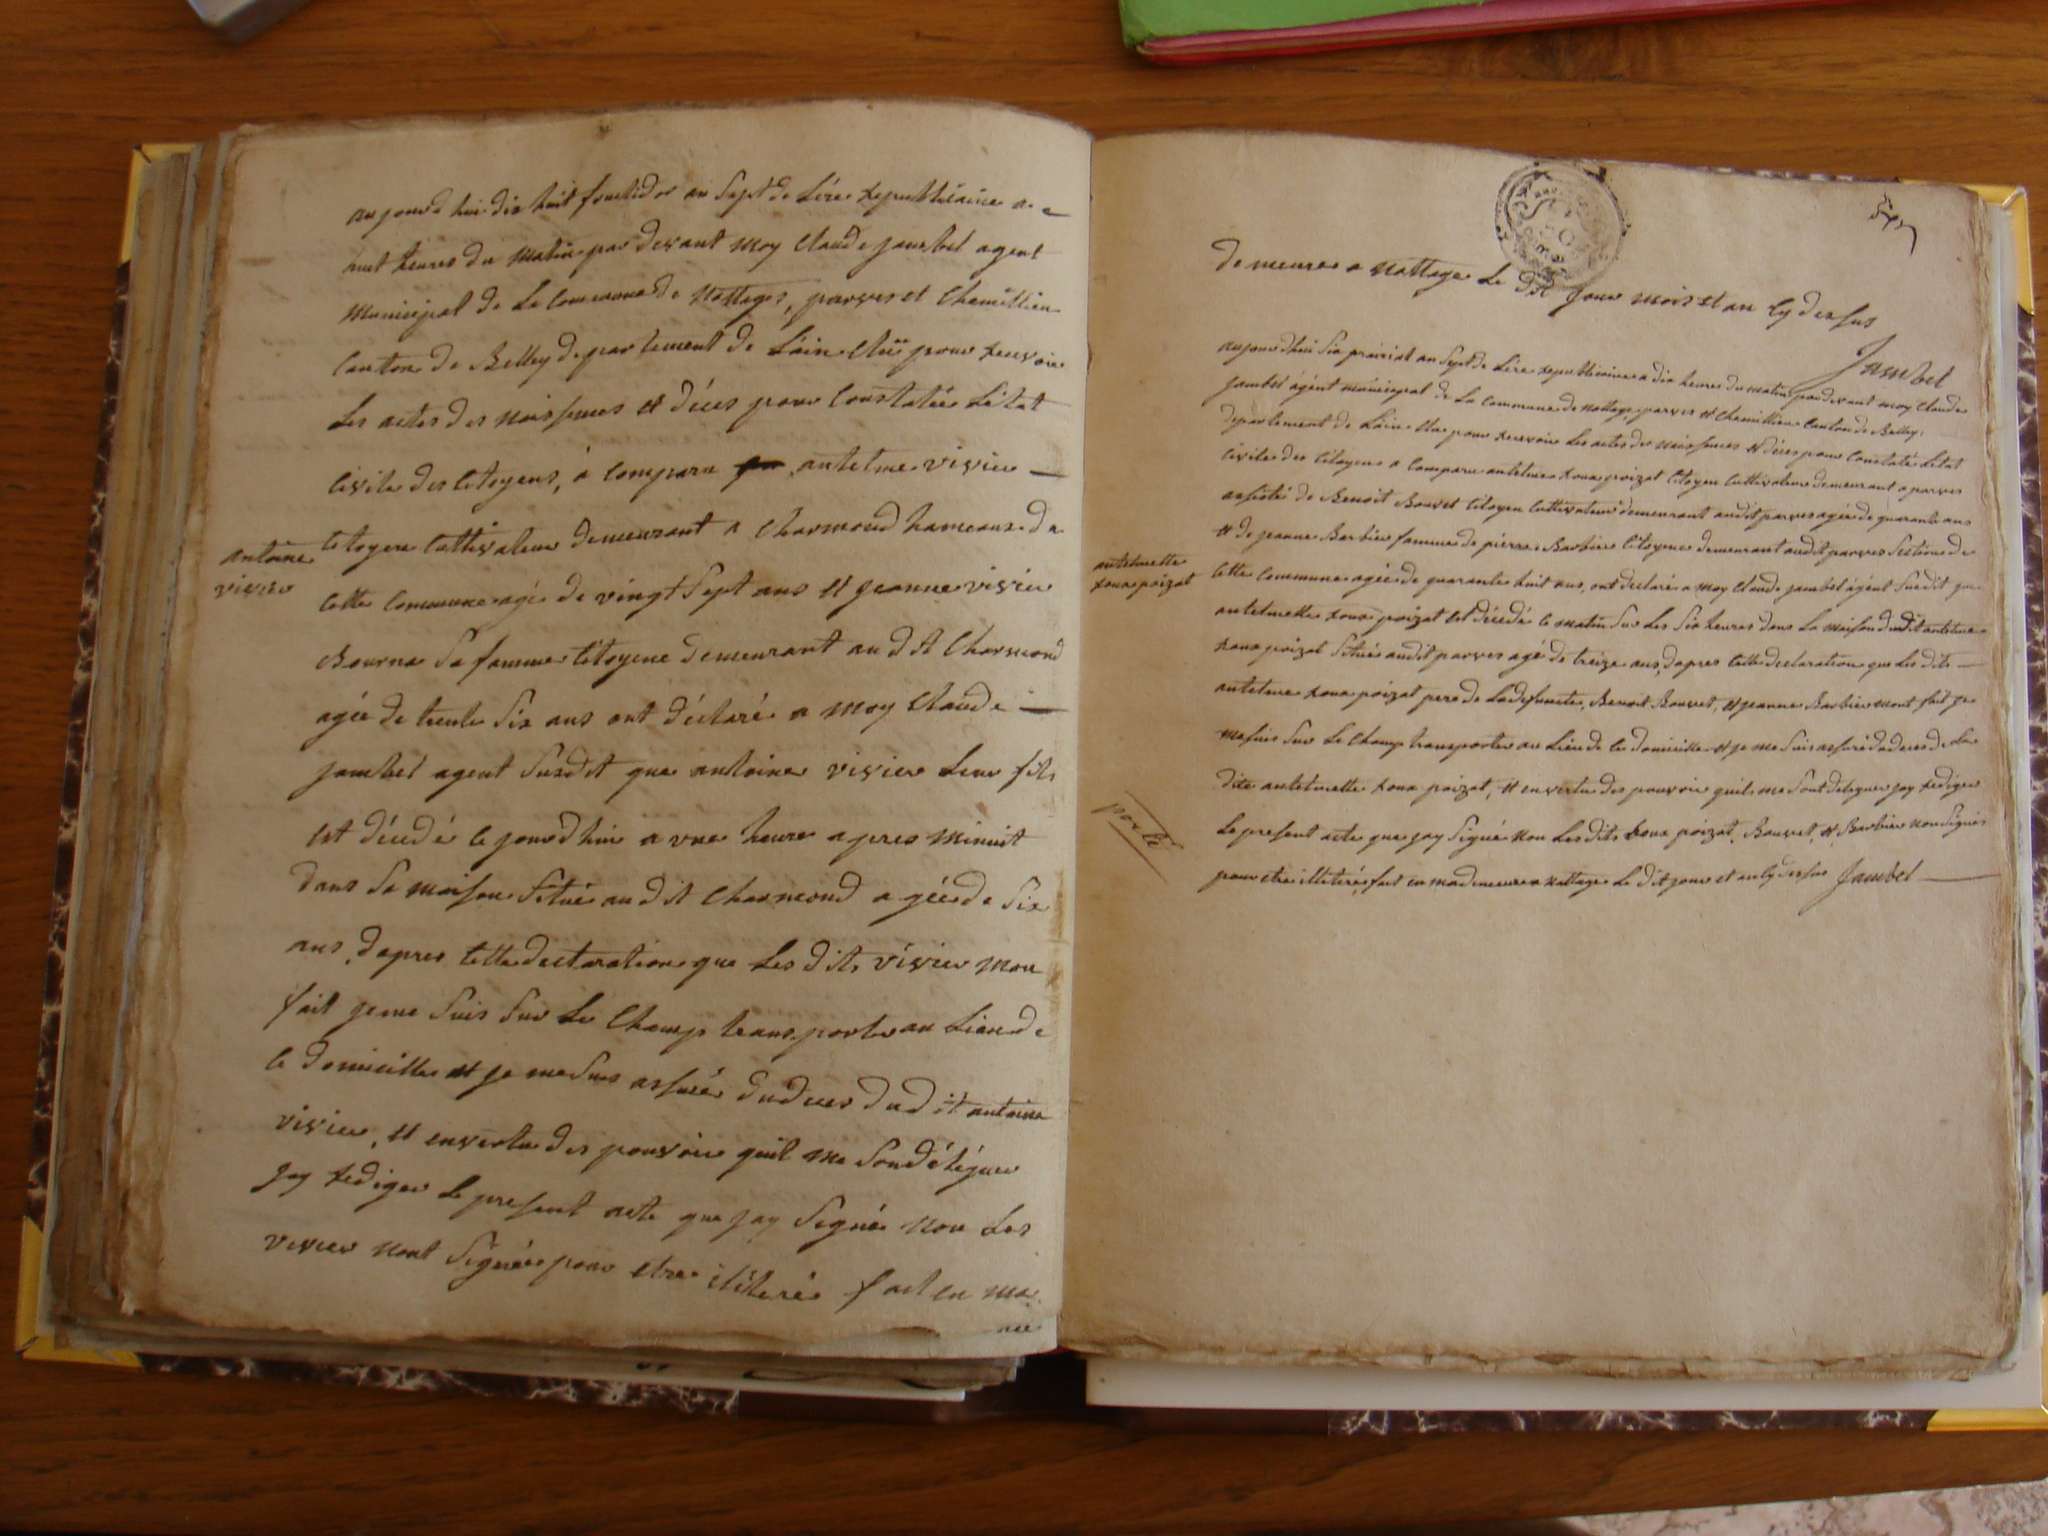 aujourd huy dix huit fructidor an sept de Lére Republicaine a
huit heures du matin par devant moy Claude jambel agent
municipal de la Commune de Nattages, parves et Chemillieu
Canton de Belley departement de Lain
Les actes des naissences et déces pour Constatér Létat
Civile des Citoyens, à Comparu antelme vivier
Citoyen Cultivateur demeurant a Charmond hameaux de
antoine
vivier
cette Commune agé de vingt sept ans et jeanne vivier
Bourne sa famme Citoyene demeurant au dit Charmond
agée de trente six ans ont déclaré a moy Claude
jambel agent susdit que antoine vivier Leur fils
est décédé ce jourd'hui a une heure apres minuit
dans sa maison située au dit Charmond agée de six
ans, dapres cette declaration que Les dits vivier mon
fait je me suis sur Le Champ transporter au Lieu de
ce domicille et je me suis assuré du deces du dit antoine
vivier, et en vertu des pouvoir quil me son délégué
jay rediger Le present acte que jay signé non Les
vivier nont signée pour etre iliteré fait en ma
demeure a nattage Le dit jour mois et an cy dessus
Jambel
aujourdhui six prairial an sept de Lére republicaine a dix heures du matin pardevant moy Claude
jambel agent municipal de La Commune de nattage, parves et Chemillieu Canton de Belley
departement de Lain elue pour recevoir Les actes des naissences et déces pour Constaté Létat
civile des Citoyens a Comparu antelme roux poizat Citoyen Cultivateur demeurant a parves
assisté de Benoit Bouvet Citoyen Cultivateur demeurant audit parves agée de quarante ans
et de jeanne Barbier famme de pierre Barbier Citoyene demeurant audit parves section de
antelmette
roux poizat
cette Commune agée de quarante huit ans, ont declaré a moy Claude jambel agent susdit que
antelmette roux poizat est décédé ce matin sur Les six heures dans La maison dudit antelme
roux poizat située audit parves agé de treize ans, dapres cette declaration que Les dits
antelme roux poizat pere de Ladefuncte, Benoit Bouvet, et jeanne Barbier mont fait je
me suis sur Le Champ transporter au Lieu de ce domicille et je me suis assuré du deces de La
dite antelmette roux poizat, et en vertu des pouvoir quil me sont deleguer jay rediger
porté
Le present acte que jay signé non Les dits roux poizat, Bouvet, et Barbier non signés
pour etre illiteré, fait en ma demeure a nattage Le dit jour et an cy dessus Jambel